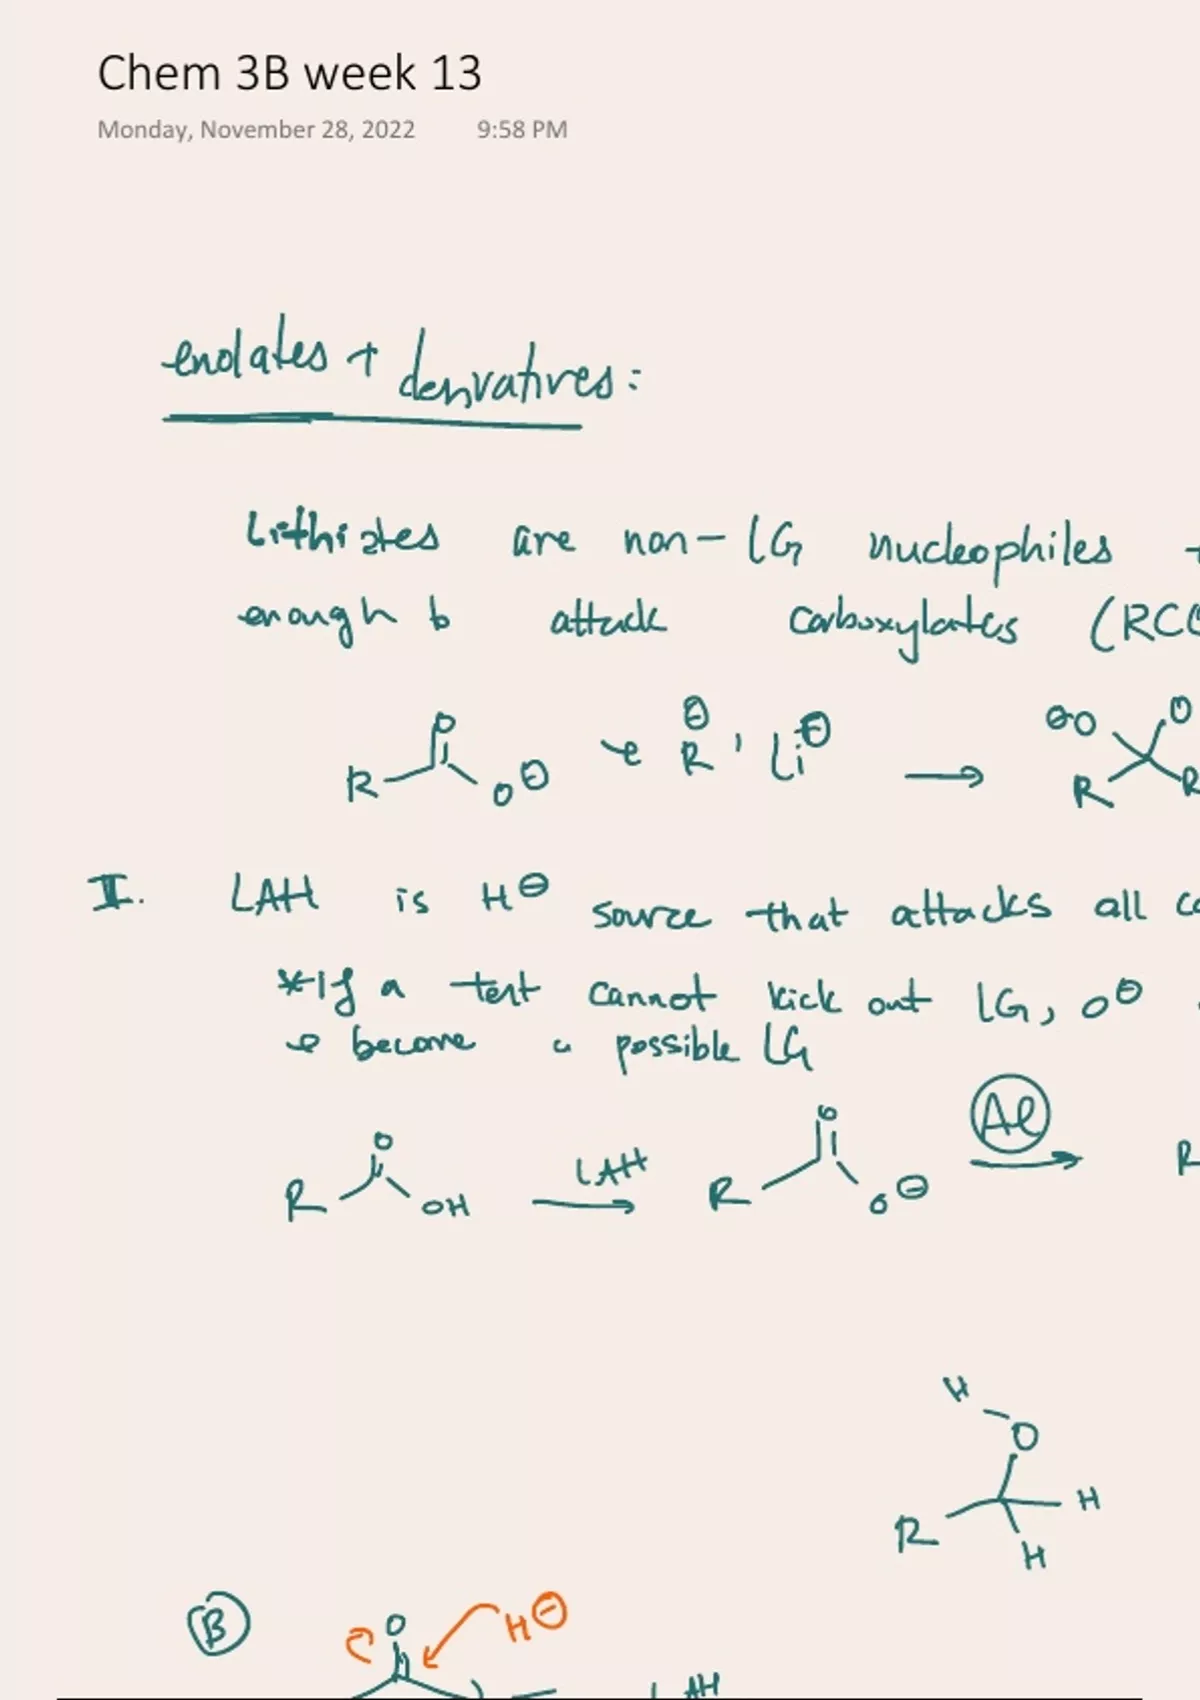 Chem 3B week 13
Monday, November 28, 2022 9:58 PM
enolates + derivatives:
Lithiates are non-LG nucleophiles +
enough to attack carboxylates (RCO
R O O⊖ R⊖ , Li⊕ → ⊖O O R R
I. LAH is H⊖ source that attacks all
*If a tert cannot kick out LG, O⊖
become a possible LG
R O OH LAH → R O O⊖ Al → R
H
O
R H
H
B O H⊖
LAH